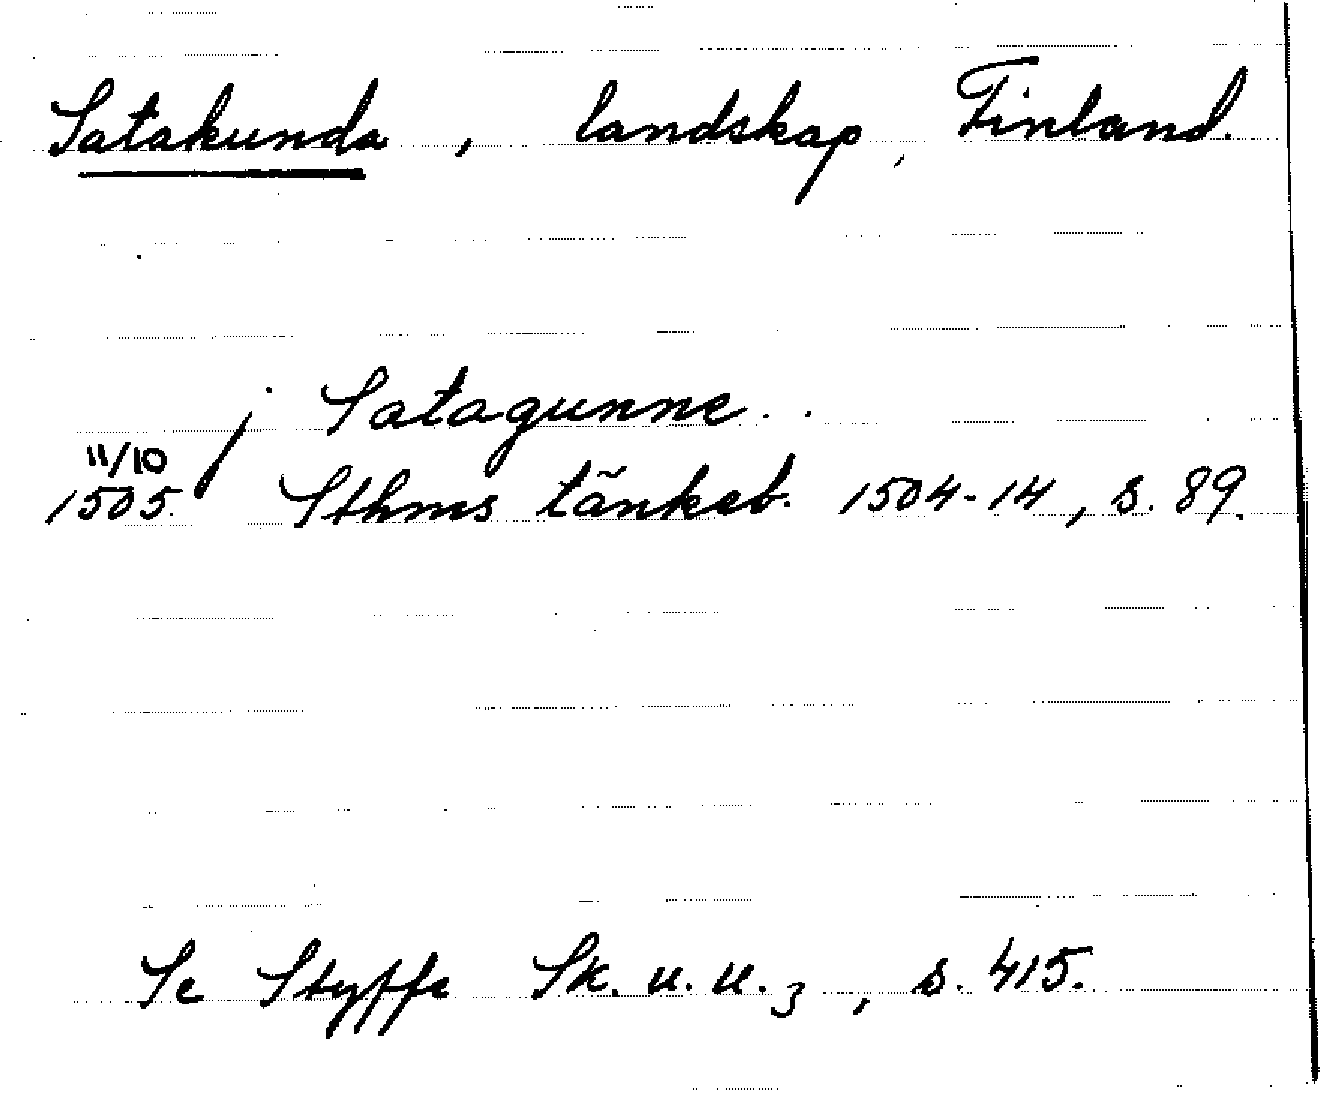 Satakunda, landskap, Finland.
j Satagunne..
11/10
1505. Sthms tänkeb. 1504-14, s. 89.
Se Styffe Sk. u. u. 3, s. 415.